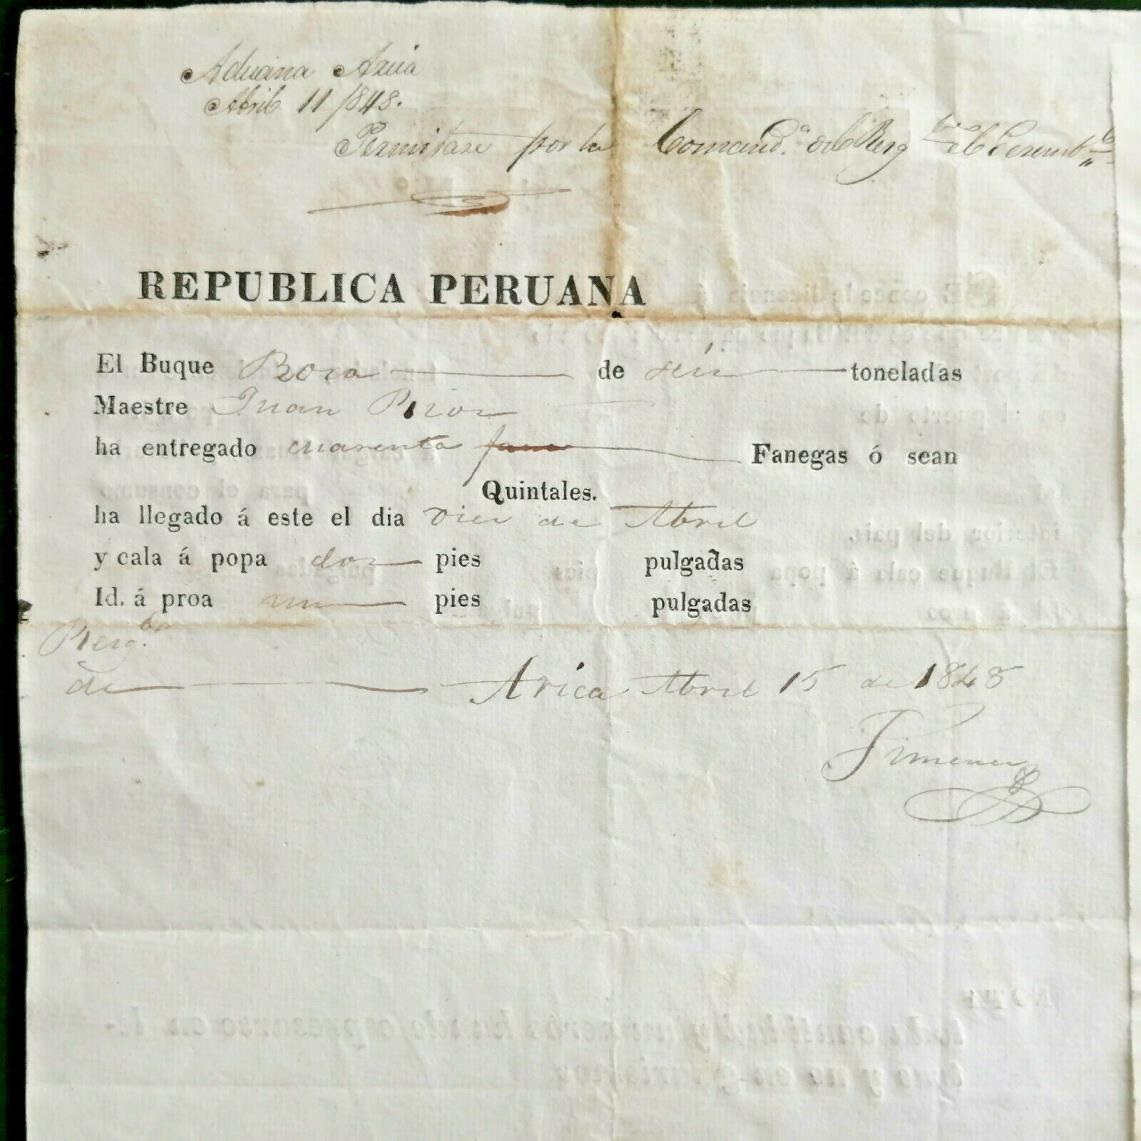 Aduana Arica
Abril 11/848.
Permitase por la Comand.ª del Resg.do el Desemb.e
REPUBLICA PERUANA
El Buque Rosa de seis toneladas
Maestre Juan
ha entregado cuarenta Fanegas ó sean
Quintales.
ha llegado á este el dia diez de Abril
y cala á popa dos pies pulgadas
Id. á proa un pies pulgadas
Resg.do
de Arica Abril 15 de 1848
Jimenez